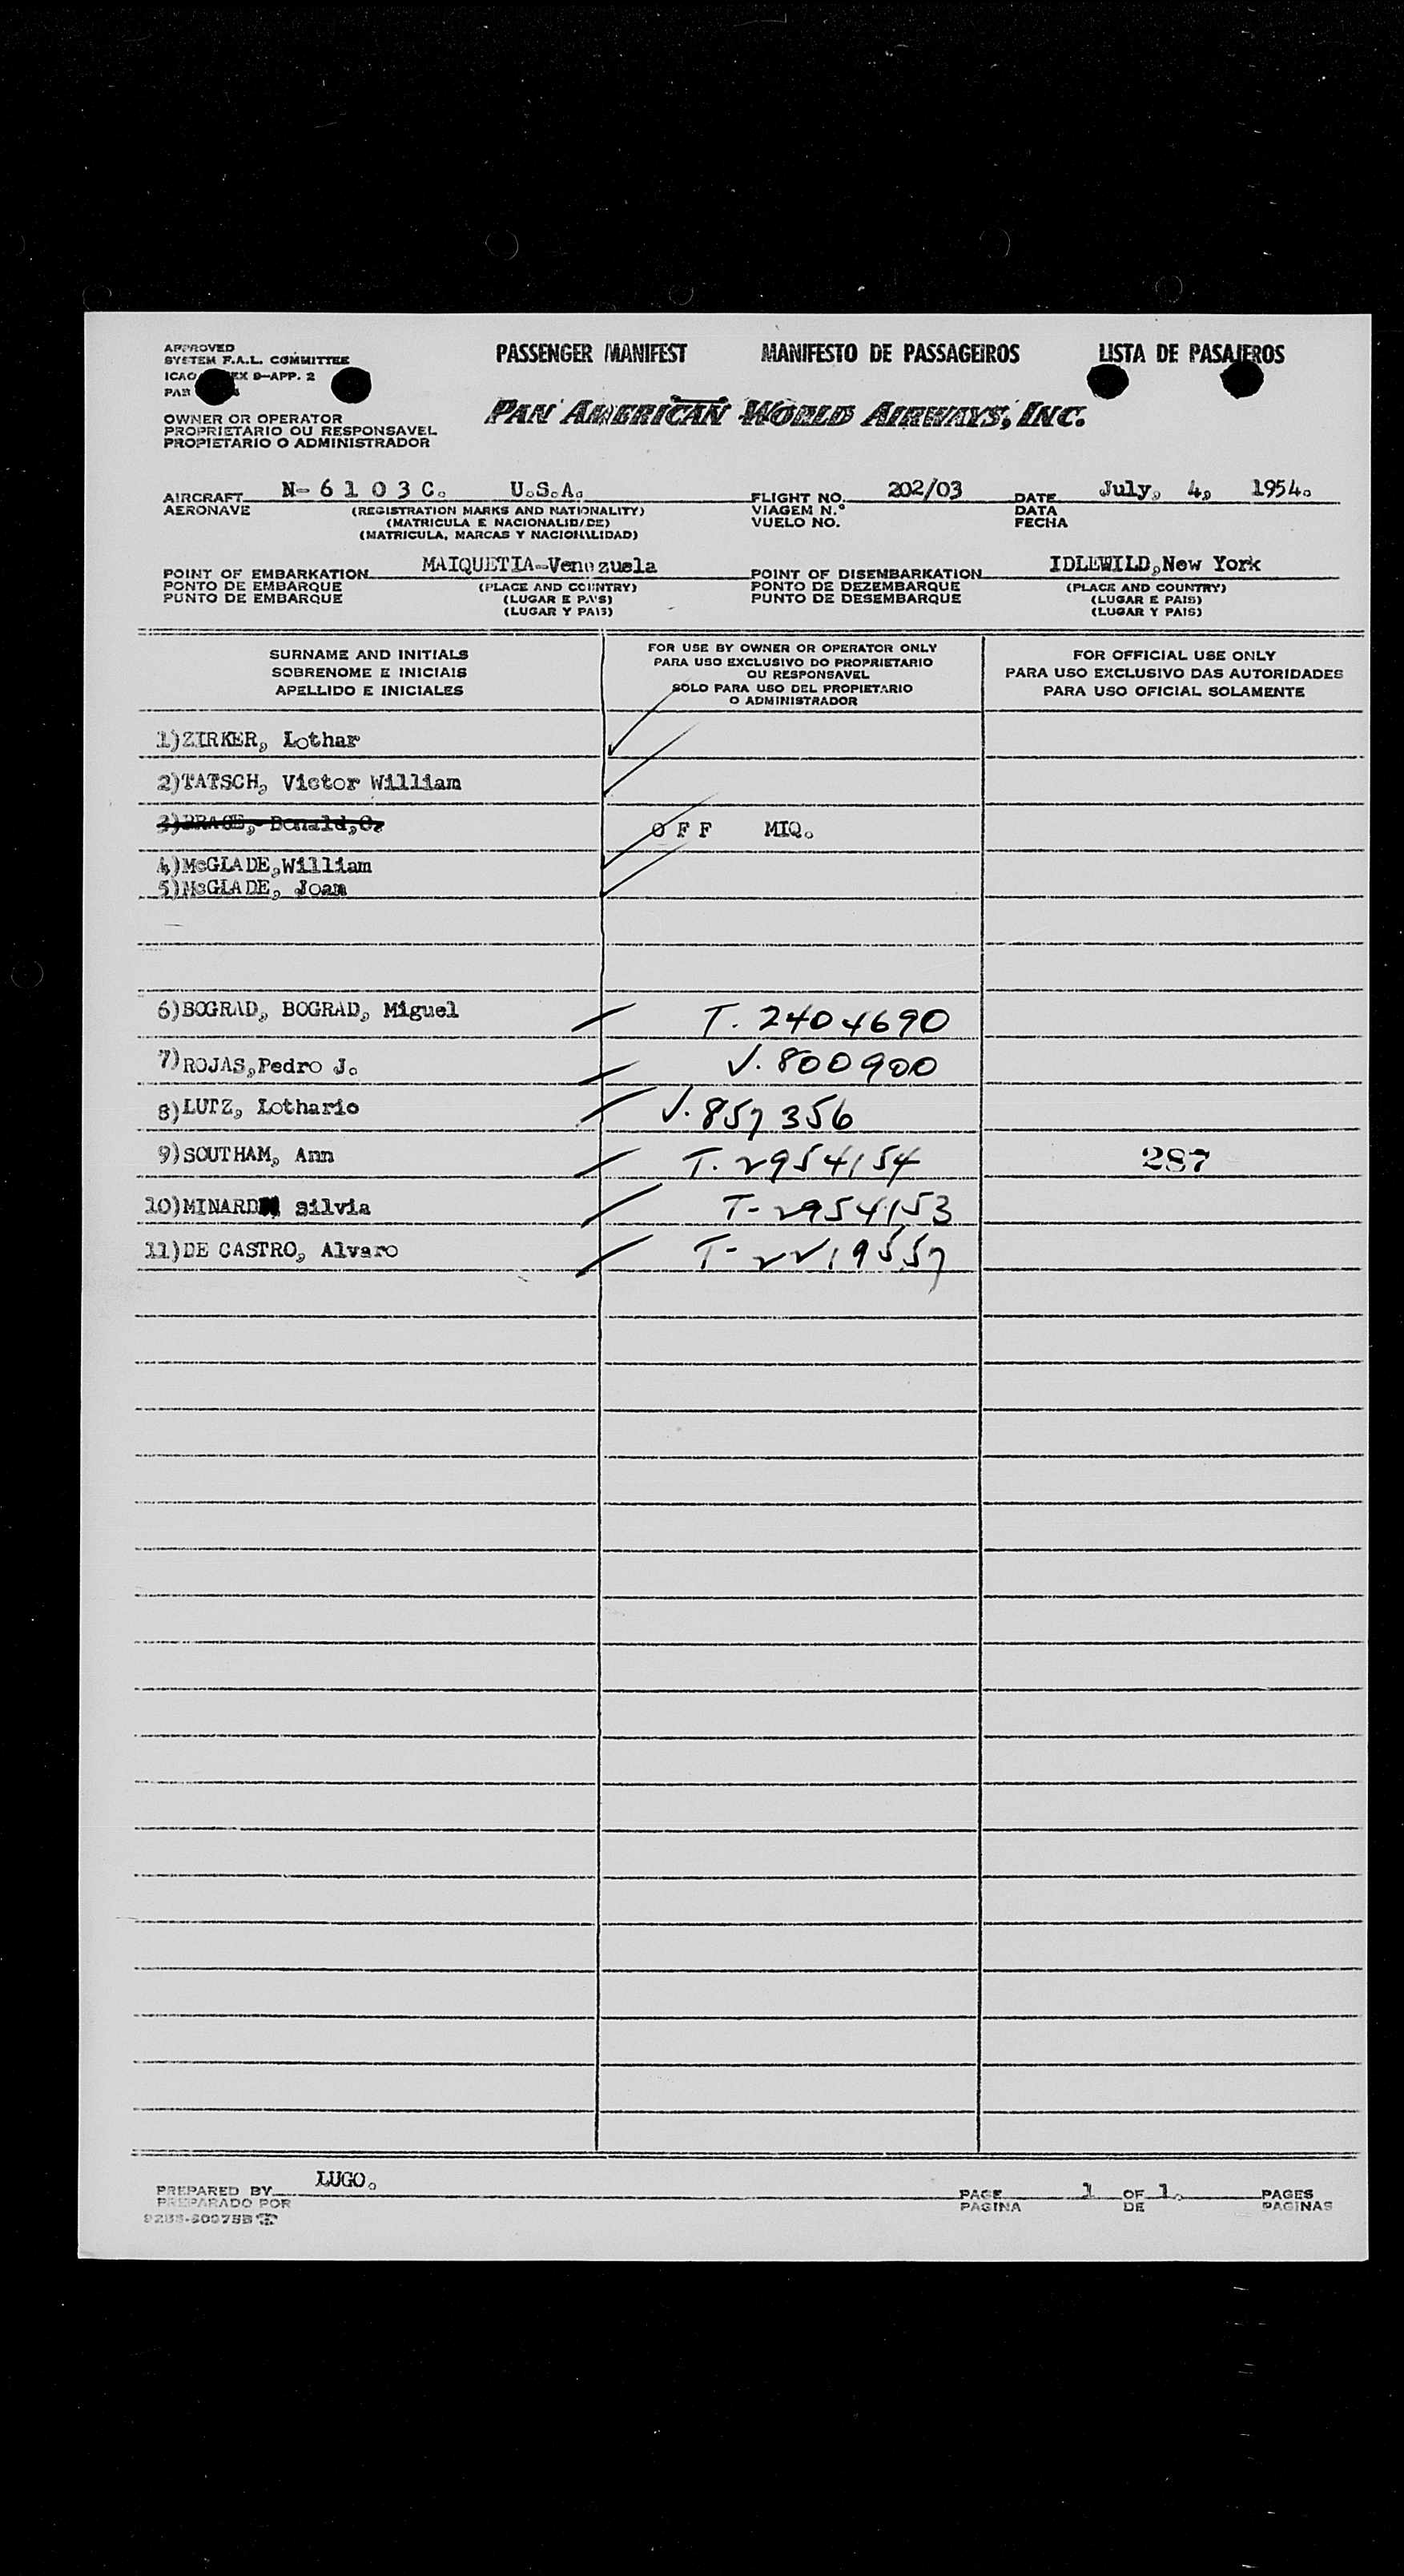 APPROVED
SYSTEM F.A.L. COMMITTEE
ICAO EX 9-APP. 2
PASSENGER MANIFEST MANIFESTO DE PASSAGEIROS LISTA DE PASAJEROS
PAN AMERICAN WORLD AIRWAYS, INC.
OWNER OR OPERATOR
PROPRIETARIO OU RESPONSAVEL
PROPIETARIO O ADMINISTRADOR
AIRCRAFT N-6103C. U.S.A. FLIGHT NO. 202/03 DATE July, 4, 1954.
AERONAVE (REGISTRATION MARKS AND NATIONALITY) VIAGEM N.º DATA
(MATRICULA E NACIONALIDADE) VUELO NO. FECHA
(MATRICULA, MARCAS Y NACIONALIDAD)
POINT OF EMBARKATION MAIQUETIA-Venezuela POINT OF DISEMBARKATION IDLEWILD, New York
PONTO DE EMBARQUE (PLACE AND COUNTRY) PONTO DE DEZEMBARQUE (PLACE AND COUNTRY)
PUNTO DE EMBARQUE (LUGAR E PAIS) PUNTO DE DESEMBARQUE (LUGAR E PAIS)
(LUGAR Y PAIS) (LUGAR Y PAIS)
SURNAME AND INITIALS
SOBRENOME E INICIAIS
APELLIDO E INICIALES
FOR USE BY OWNER OR OPERATOR ONLY
PARA USO EXCLUSIVO DO PROPRIETARIO
OU RESPONSAVEL
SOLO PARA USO DEL PROPIETARIO
O ADMINISTRADOR
FOR OFFICIAL USE ONLY
PARA USO EXCLUSIVO DAS AUTORIDADES
PARA USO OFICIAL SOLAMENTE
1)ZIRKER, Lothar
2)TATSCH, Victor William
3) Donald, OFF MIQ.
4)McGLADE,William
5)McGLADE, Joan
6)BOGRAD, BOGRAD, Miguel T. 2404690
7)ROJAS,Pedro J. V. 800900
8)LUTZ, Lothario V. 857356
9)SOUTHAM, Ann T. 2954154 287
10)MINARD Silvia T-2954153
11)DE CASTRO, Alvaro T-2219557
PREPARED BY LUGO. PAGE 1 OF 1. PAGES
PREPARADO POR PAGINA DE PAGINAS